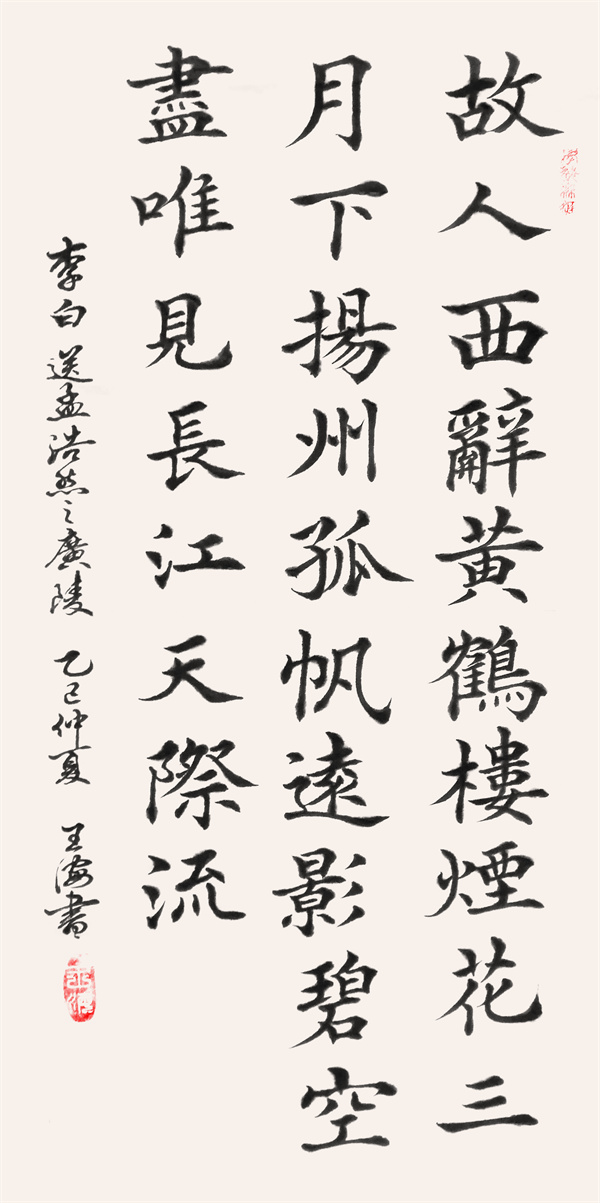 故人西辭黃鶴樓煙花三
月下揚州孤帆遠影碧空
盡唯見長江天際流
李白送孟浩然之廣陵 乙巳仲夏 王海書